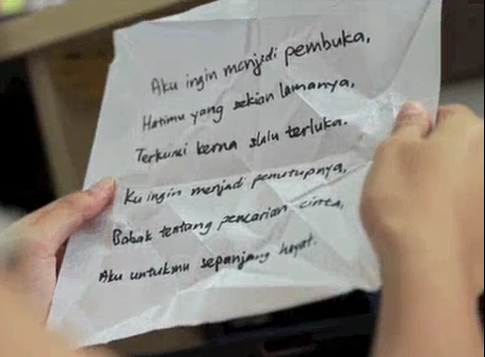 Aku ingin menjadi pembuka,
Hatimu yang sekian lamanya,
Terkunci kerna slalu terluka.
Ku ingin menjadi penutupnya,
Babak tentang pencarian cinta,
Aku untukmu sepanjang hayat.